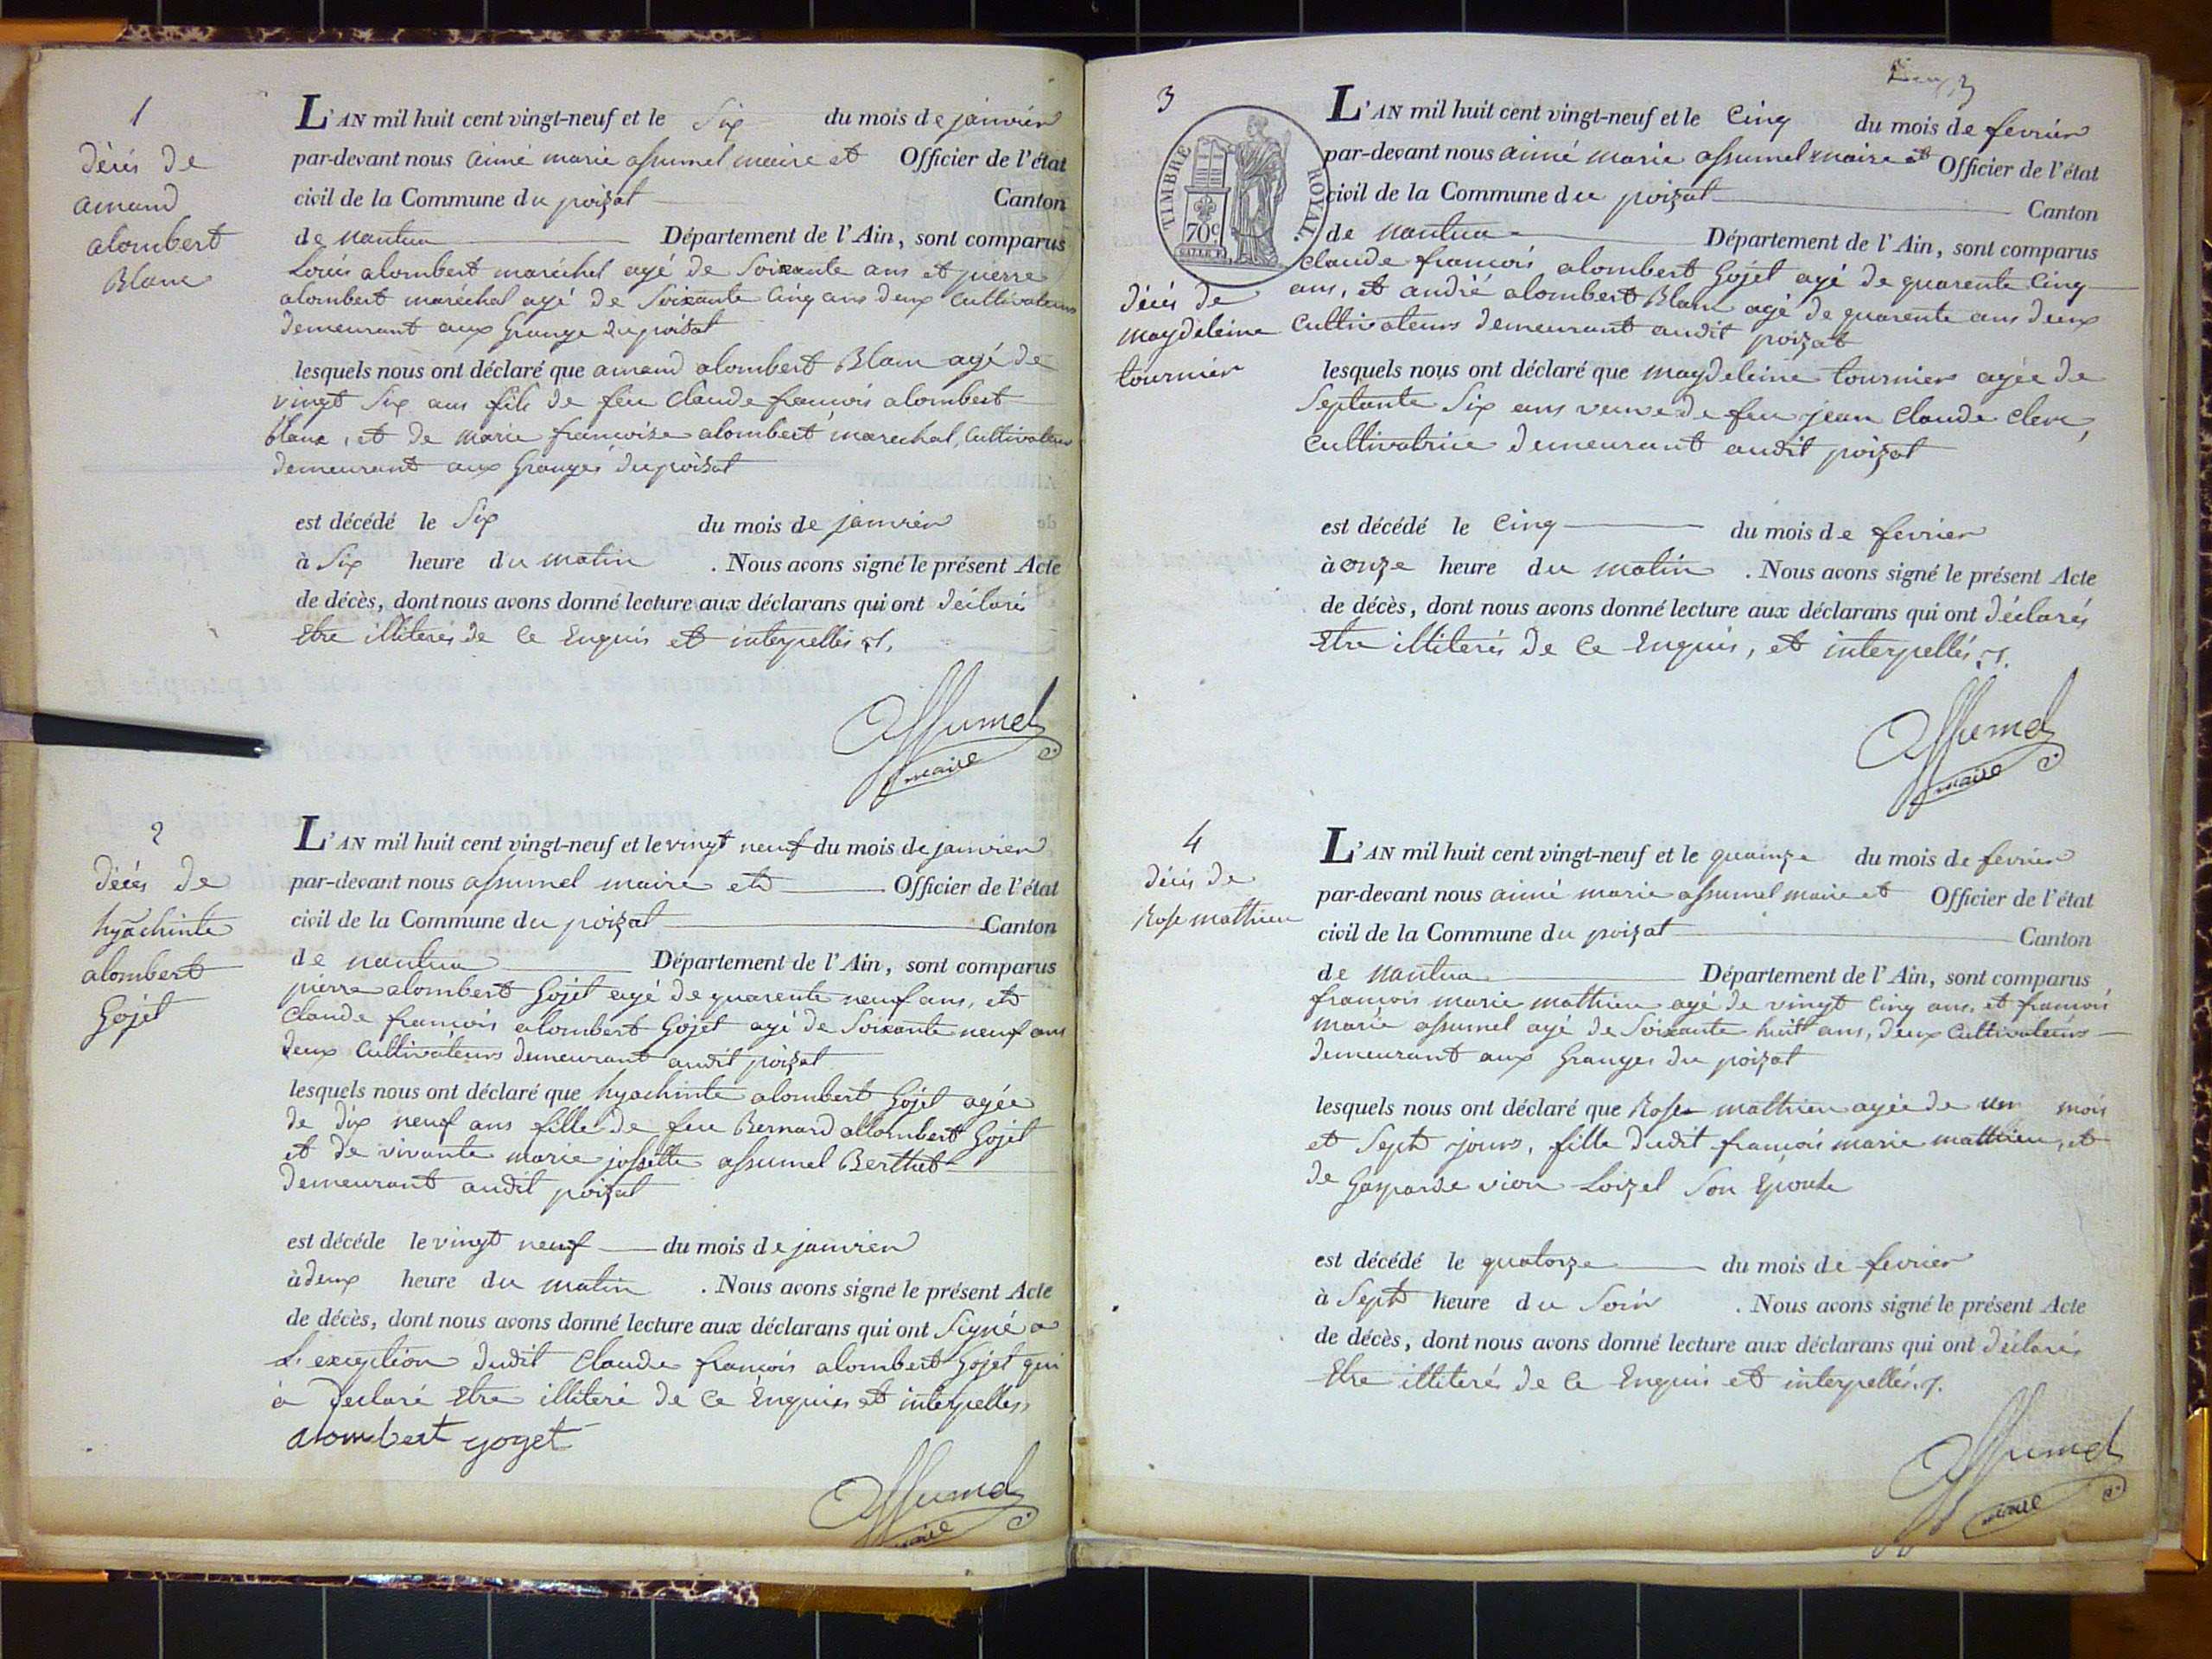 1
décés de
amand
alombert
Blanc
L'AN mil huit cent vingt-neuf et le Six du mois de janvier
par-devant nous aimé marie assumel maire et Officier de l'état
civil de la Commune du poizat Canton
de nantua Département de l'Ain, sont comparus
Louis alombert maréchal agé de Soixante ans et pierre
alombert maréchal agé de Soixante Cinq ans deux Cultivateurs
demeurant aux Grange du poizat
lesquels nous ont déclaré que amand alombert Blanc agé de
vingt Six ans fils de feu Claude francois alombert
blanc, et de marie francoise alombert marechal, Cultivateur
demeurant aux Granges du poizat
est décédé le Six du mois de janvier
à Six heure du matin . Nous avons signé le présent Acte
de décès, dont nous avons donné lecture aux déclarans qui ont déclarés
Etre illiterés de Ce Enquis et interpellés
Assumel
maire
2
décés de
hyachinte
alombert
Gojet
L'AN mil huit cent vingt-neuf et le vingt neuf du mois de janvier
par-devant nous assumel maire et Officier de l'état
civil de la Commune du poizat Canton
de nantua Département de l'Ain, sont comparus
pierre alombert Gojet agé de quarente neuf ans, et
Claude francois alombert Gojet agé de Soixante neuf ans
deux Cultivateurs demeurant audit poizat
lesquels nous ont déclaré que hyachinte alombert Gojet agée
de dix neuf ans fille de feu Bernard allombert Gojet
et de vivante marie jossette assumel Berthet
demeurant audit poizat
est décéde le vingt neuf du mois de janvier
à deux heure du matin . Nous avons signé le présent Acte
de décès, dont nous avons donné lecture aux déclarans qui ont Signé a
L'exeception dudit Claude francois alombert Gojet qui
à declaré Etre illiteré de Ce Enquis et interpellés
alombert goget
Assumel
maire
3
TIMBRE ROYAL
70c
décés de
magdeleine
tournier
L'AN mil huit cent vingt-neuf et le Cinq du mois de fevrier
par-devant nous aimé marie assumel maire et Officier de l'état
civil de la Commune du poizat Canton
de nantua Département de l'Ain, sont comparus
Claude francois alombert Gojet agé de quarente Cinq
ans, et andré alombert Blanc agé de quarente ans deux
Cultivateurs demeurant audit poizat
lesquels nous ont déclaré que magdeleine tournier agée de
Septante Six ans veuve de feu jean Claude Clerc,
Cultivatrice demeurant audit poizat
est décédé le Cinq du mois de fevrier
à onze heure du matin . Nous avons signé le présent Acte
de décès, dont nous avons donné lecture aux déclarans qui ont déclarés
Etre illiterés de Ce Enquis, et interpellés
Assumel
maire
4
décés de
Rose mathieu
L'AN mil huit cent vingt-neuf et le quainze du mois de fevrier
par-devant nous aimé marie assumel maire et Officier de l'état
civil de la Commune du poizat Canton
de nantua Département de l'Ain, sont comparus
francois marie mathieu agé de vingt Cinq ans, et francois
marie assumel agé de Soixante huit ans, deux Cultivateurs
demeurant aux Granges du poizat
lesquels nous ont déclaré que Rose mathieu agée de un mois
et Sept jours, fille dudit francois marie mathieu, et
de Gasparde vion Loizel Son Epouse
est décédé le quatorze du mois de fevrier
à Sept heure du Soir . Nous avons signé le présent Acte
de décès, dont nous avons donné lecture aux déclarans qui ont déclarés
Etre illiterés de Ce Enquis et interpellés
Assumel
maire